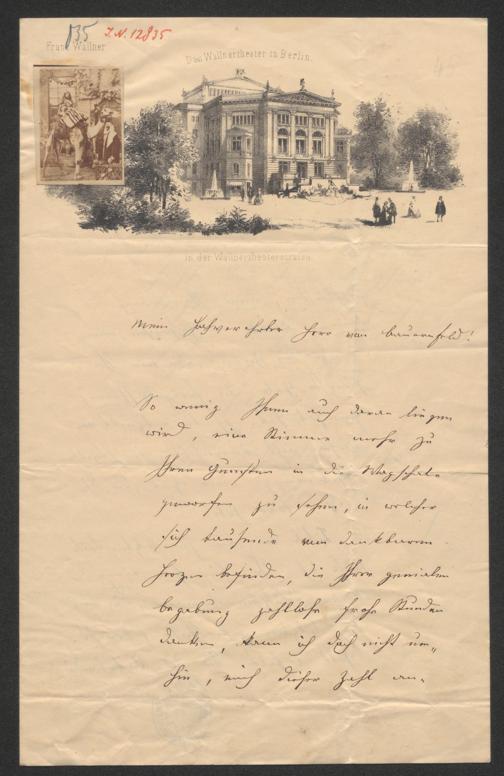 135
I.N. 12835
Franz Wallner
Das Wallnertheater in Berlin.
in der Wallnertheaterstrasse.
Mein hochverehrter Herr von Bauernfeld!
So wenig Ihnen auch daran liegen
wird, eine Stimme mehr zu
Ihren Gunsten in die Wagschale
geworfen zu sehen, in welcher
sich tausende von dankbaren
Herzen befinden, die Ihrer genialen
Begabung zahllose frohe Stunden
danken, kann ich doch nicht um„
hin, mich dieser Zahl an„